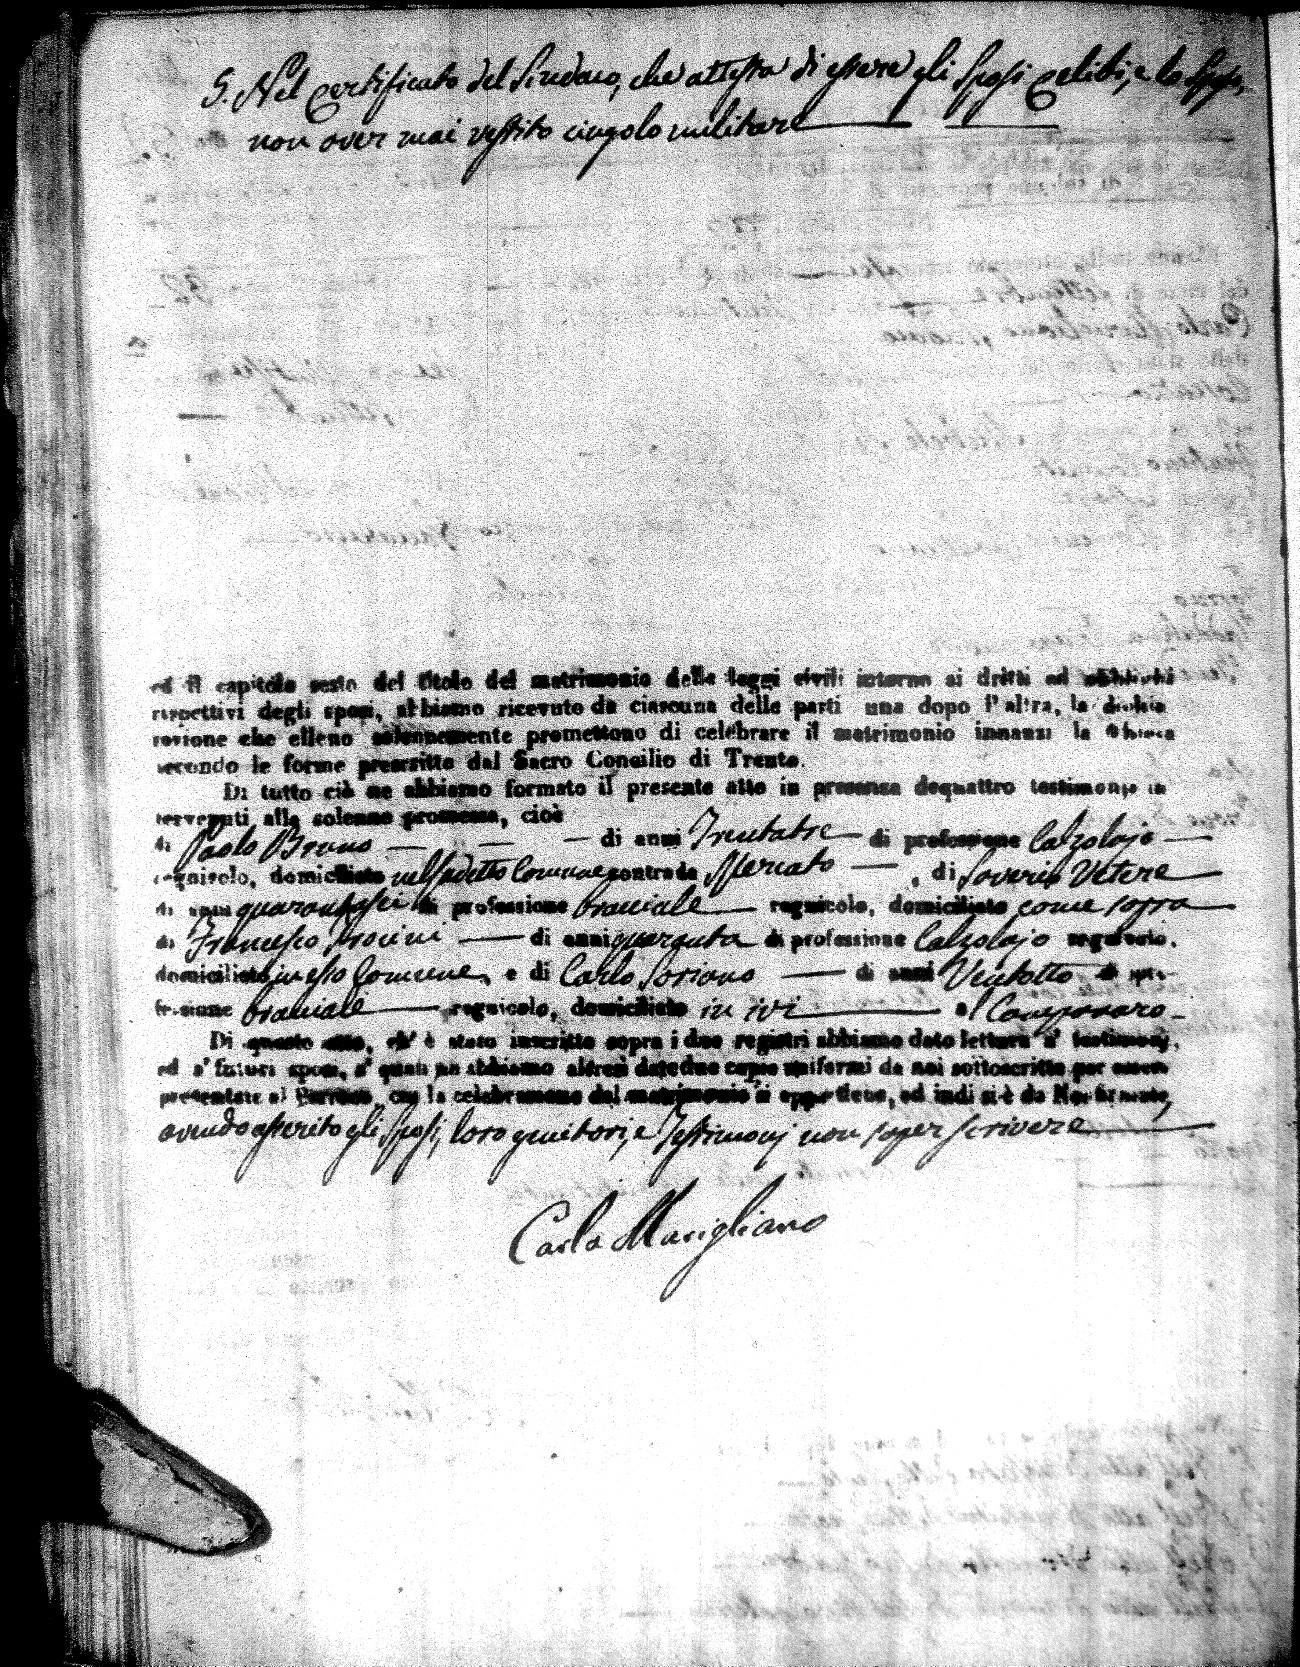 5. Nel Certificato del Sindaco, che attesta di essere gli Sposi Celibi, e lo Sposo,
non aver mai vestito cingolo militare
ed il capitolo sesto del titolo del matrimonio delle leggi civili intorno ai dritti ed obblighi
rispettivi degli sposi, abbiamo ricevuto da ciascuna delle parti una dopo l'altra, la dichia
razione che elleno solennemente promettono di celebrare il matrimonio innanzi la Chiesa
secondo le forme prescritte dal Sacro Concilio di Trento.
Di tutto ciò ne abbiamo formato il presente atto in presenza dequattro testimonje in
tervenuti alla solenne promessa, cioè
di Paolo Bruno — — — di anni Trentatre — di professione Calzolajo —
regnicolo, domiciliato nell'addetto Comune contrada Mercato — , di Saverio Vetere
di anni quarantasei di professione bracciale — regnicolo, domiciliato come sopra
di Francesco — di anni quaranta di professione Calzolajo regnicolo,
domiciliato in esso Comune, e di Carlo Soriano — di anni Ventotto di pro-
fessione bracciale — regnicolo, domiciliato in ivi — al
Di questo atto, ch' è stato inscritto sopra i due registri abbiamo dato lettura a' testimonj,
ed a' futuri sposi, a' quali ne abbiamo altresì date due copie uniformi da noi sottoscritte per essere
presentate al Parroco, cui la celebrazione del matrimonio si appartiene, ed indi si è da Noi firmato,
avendo asserito gli Sposi, loro genitori, e Testimonj non saper scrivere
Carlo Marigliano